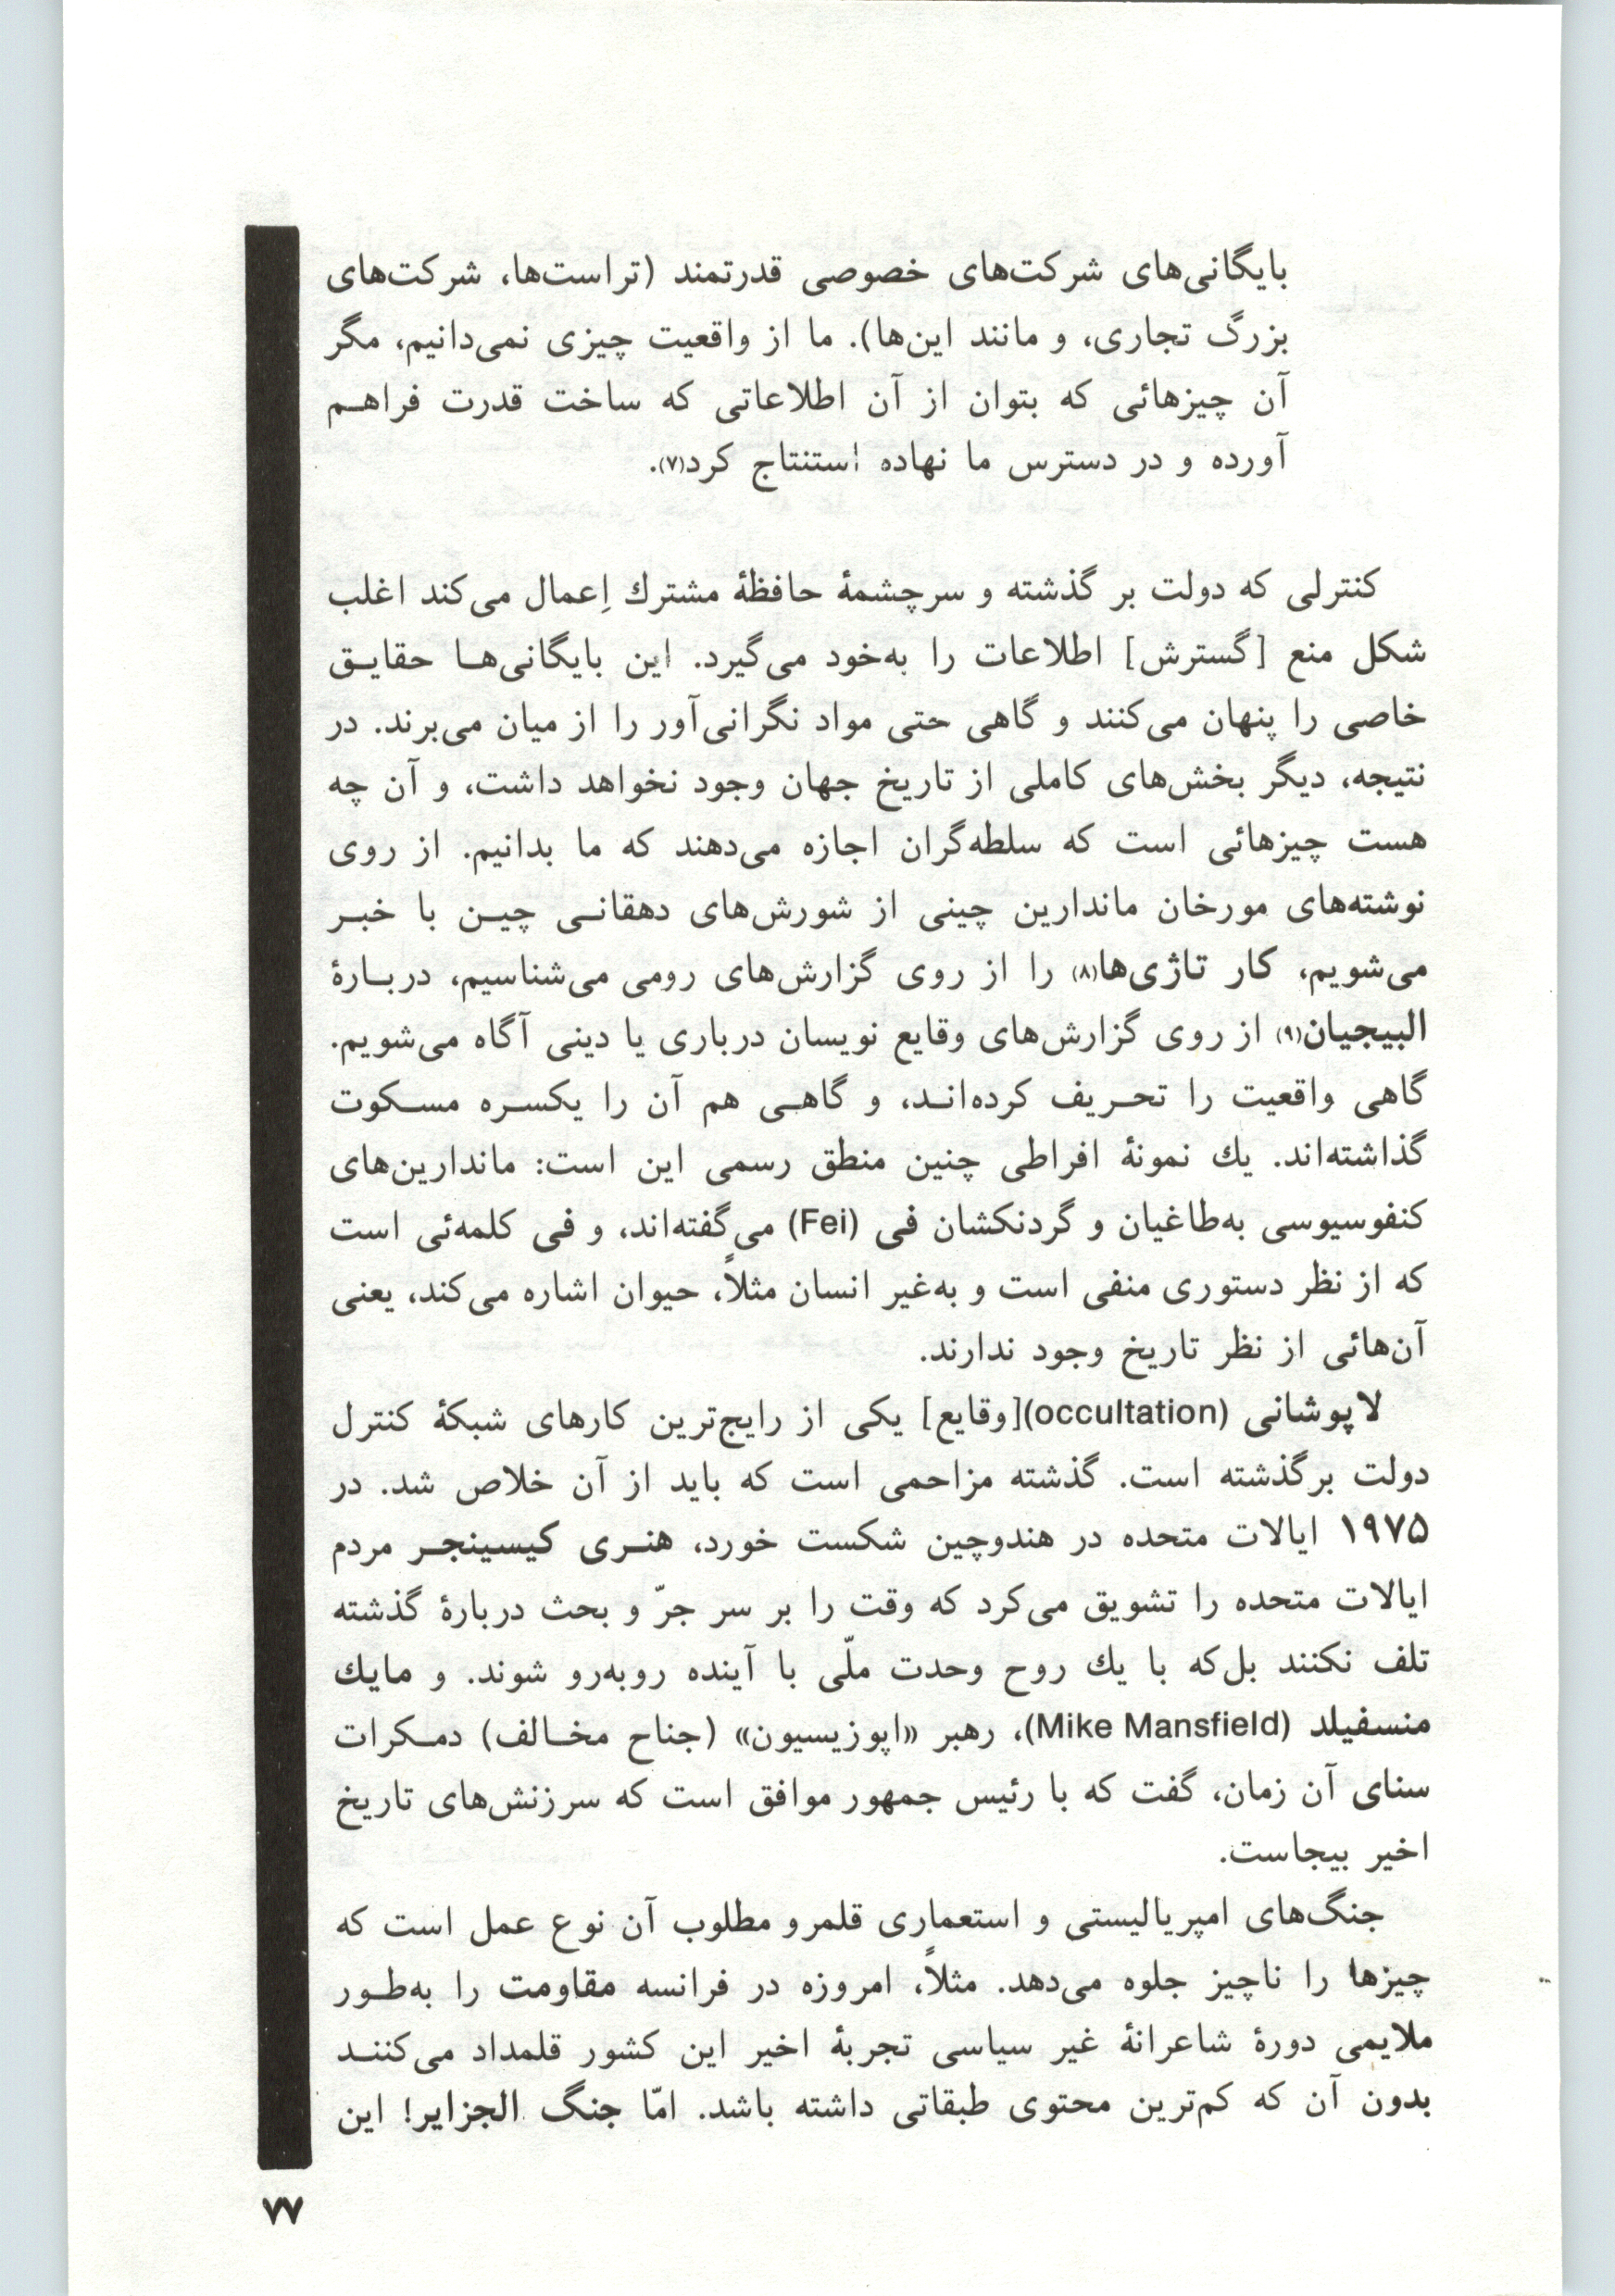 بایگانی‌های شرکت‌های خصوصی قدرتمند (تراست‌ها، شرکت‌های
بزرگ تجاری، و مانند این‌ها). ما از واقعیت چیزی نمی‌دانیم، مگر
آن چیزهائی که بتوان از آن اطلاعاتی که ساخت قدرت فراهم
آورده و در دسترس ما نهاده استنتاج کرد(۷).
کنترلی که دولت بر گذشته و سرچشمهٔ حافظهٔ مشترك اِعمال می‌کند اغلب
شکل منع [گسترش] اطلاعات را به‌خود می‌گیرد. این بایگانی‌ها حقایق
خاصی را پنهان می‌کنند و گاهی حتی مواد نگرانی‌آور را از میان می‌برند. در
نتیجه، دیگر بخش‌های کاملی از تاریخ جهان وجود نخواهد داشت، و آن چه
هست چیزهائی است که سلطه‌گران اجازه می‌دهند که ما بدانیم. از روی
نوشته‌های مورخان ماندارین چینی از شورش‌های دهقانی چین با خبر
می‌شویم، کار تاژی‌ها(۸) را از روی گزارش‌های رومی می‌شناسیم، دربارهٔ
البیجیان(۹) از روی گزارش‌های وقایع نویسان درباری یا دینی آگاه می‌شویم.
گاهی واقعیت را تحریف کرده‌اند، و گاهی هم آن را یکسره مسکوت
گذاشته‌اند. یك نمونهٔ افراطی چنین منطق رسمی این است: ماندارین‌های
کنفوسیوسی به‌طاغیان و گردنکشان فی (Fei) می‌گفته‌اند، و فی کلمه‌ئی است
که از نظر دستوری منفی است و به‌غیر انسان مثلاً، حیوان اشاره می‌کند، یعنی
آن‌هائی از نظر تاریخ وجود ندارند.
لاپوشانی (occultation)[وقایع] یکی از رایج‌ترین کارهای شبکهٔ کنترل
دولت برگذشته است. گذشته مزاحمی است که باید از آن خلاص شد. در
۱۹۷۵ ایالات متحده در هندوچین شکست خورد، هنری کیسینجر مردم
ایالات متحده را تشویق می‌کرد که وقت را بر سر جرّ و بحث دربارهٔ گذشته
تلف نکنند بل‌که با یك روح وحدت ملّی با آینده روبه‌رو شوند. و مایك
منسفیلد (Mike Mansfield)، رهبر «اپوزیسیون» (جناح مخالف) دمکرات
سنای آن زمان، گفت که با رئیس جمهور موافق است که سرزنش‌های تاریخ
اخیر بیجاست.
جنگ‌های امپریالیستی و استعماری قلمرو مطلوب آن نوع عمل است که
چیزها را ناچیز جلوه می‌دهد. مثلاً، امروزه در فرانسه مقاومت را به‌طور
ملایمی دورهٔ شاعرانهٔ غیر سیاسی تجربهٔ اخیر این کشور قلمداد می‌کنند
بدون آن که کم‌ترین محتوی طبقاتی داشته باشد. امّا جنگ الجزایر! این
۷۷